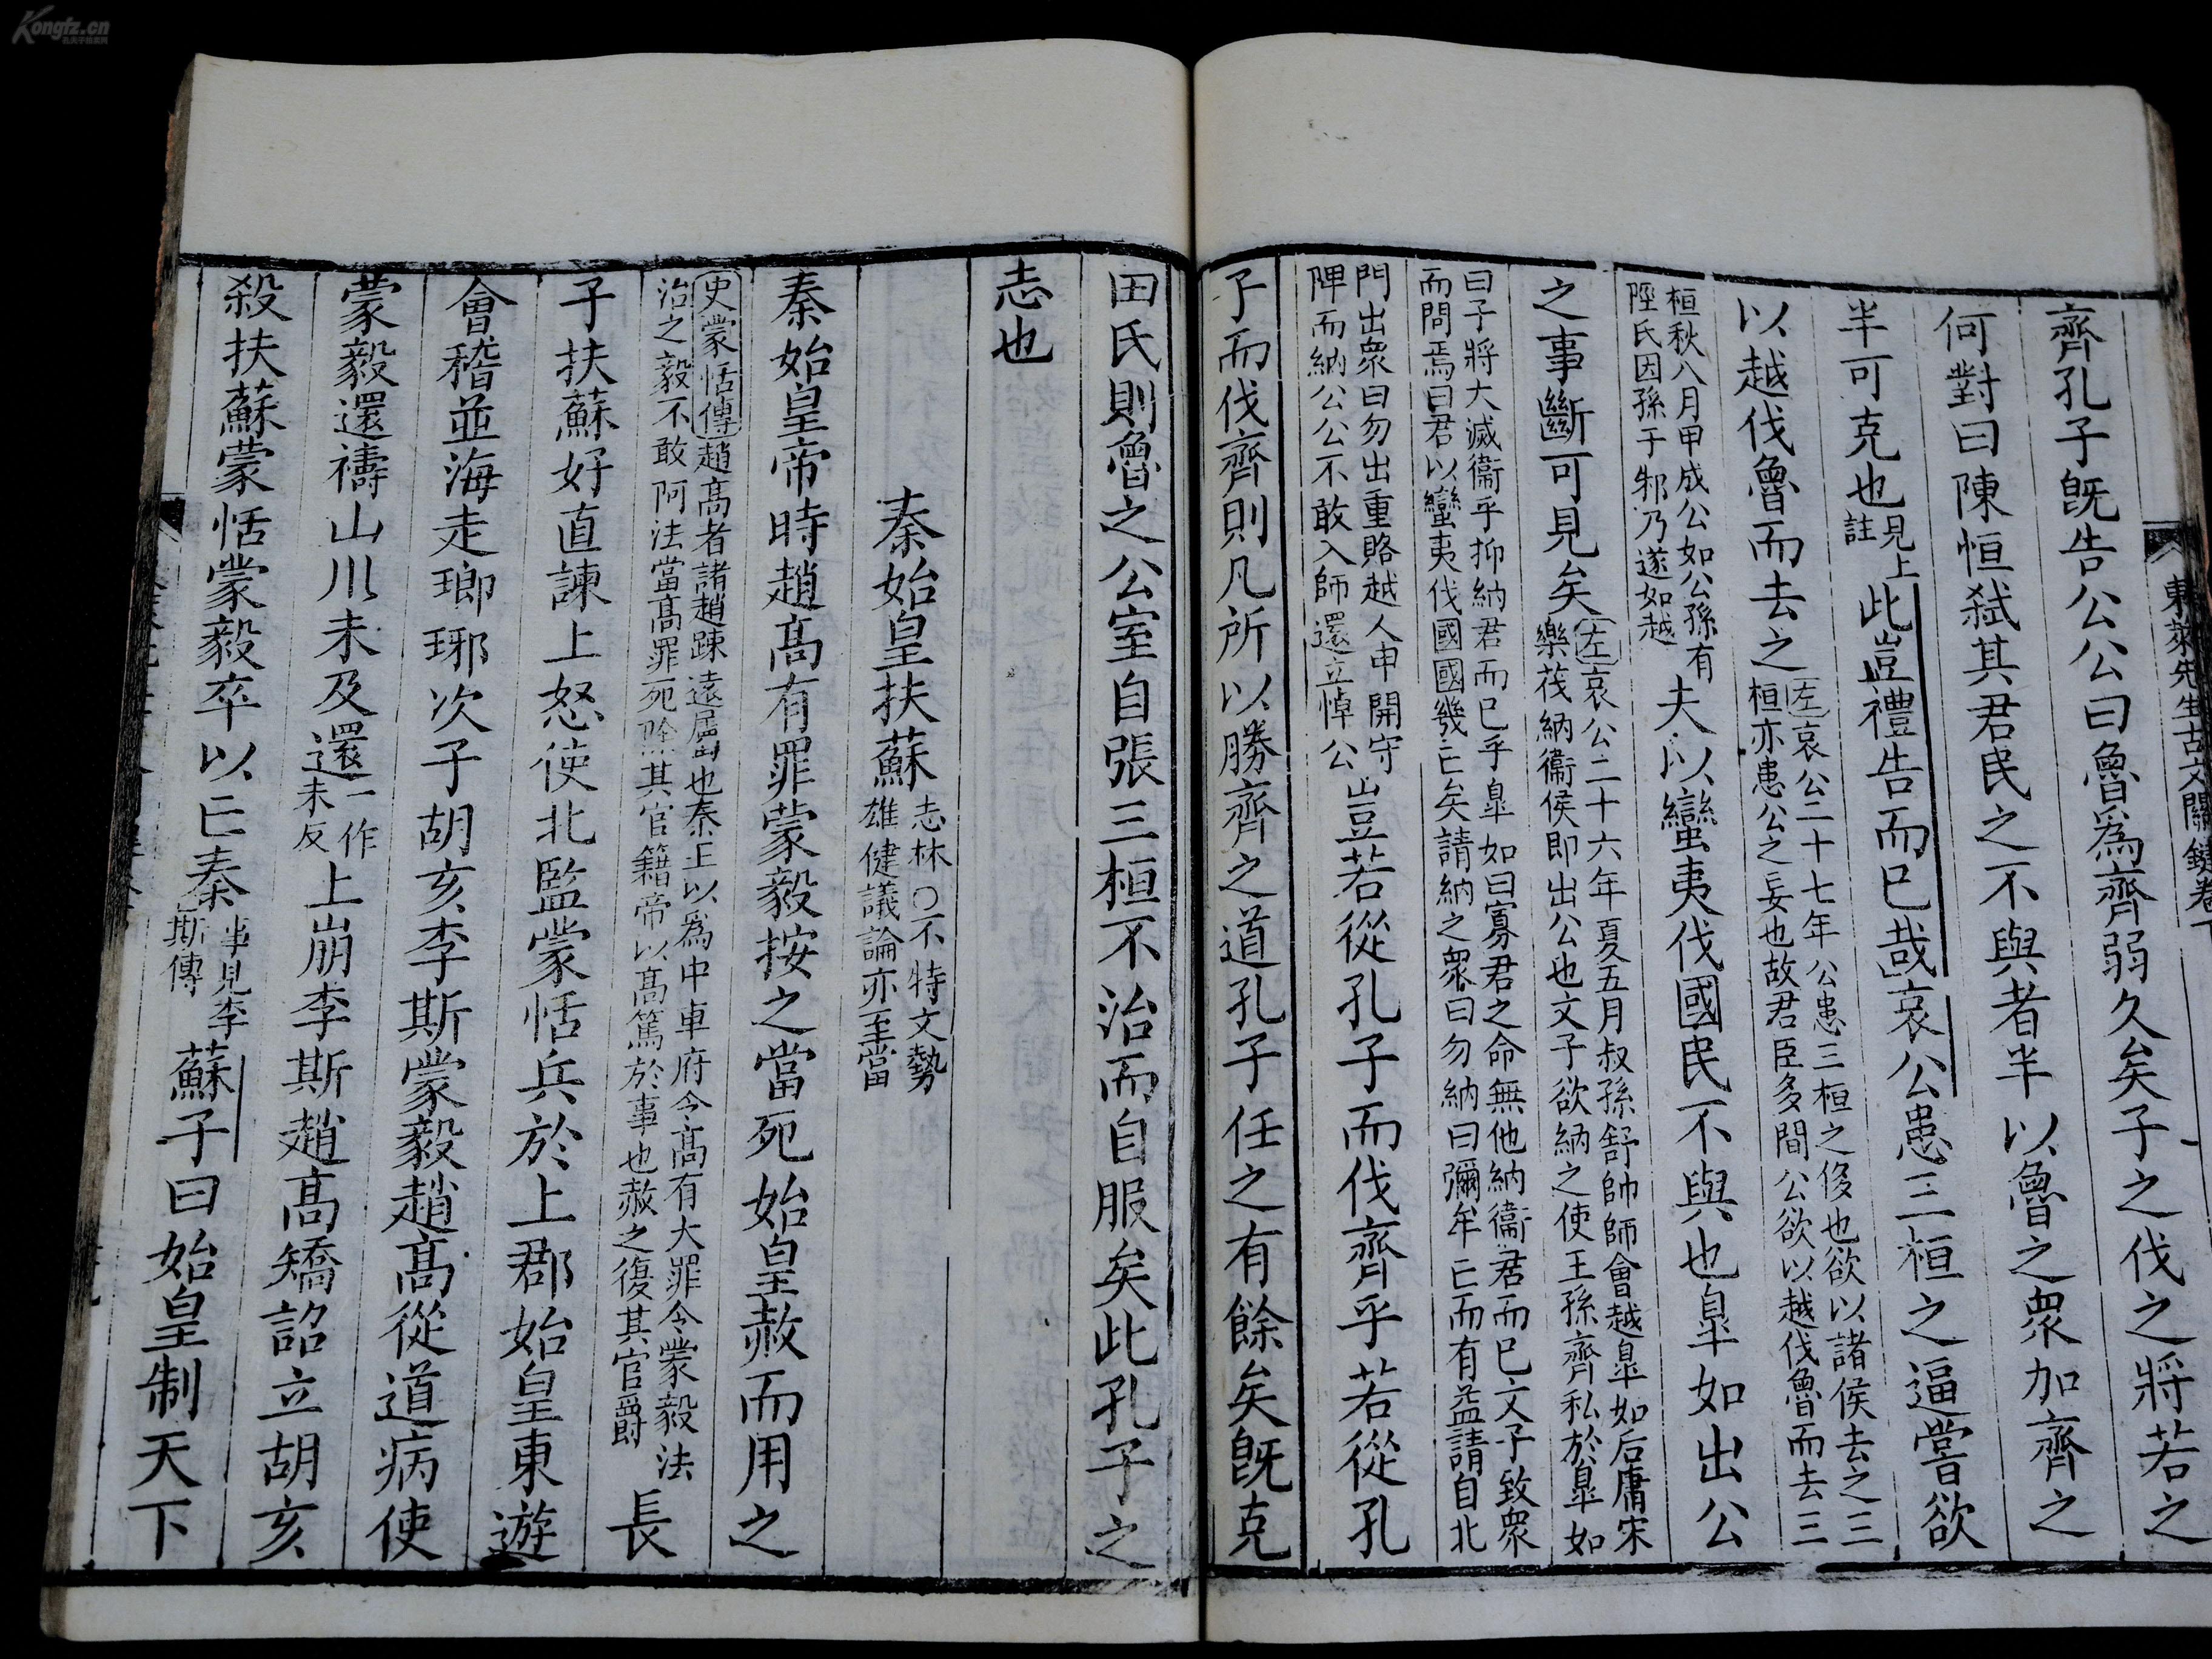 Kongfz.cn
東萊先生古文關鍵卷下
齊孔子旣告公公曰魯爲齊弱久矣子之伐之將若之
何對曰陳恒弑其君民之不與者半以魯之衆加齊之
半可克也見上註此豈禮告而已哉哀公患三桓之逼嘗欲
以越伐魯而去之左哀公二十七年公患三桓之侈也欲以諸侯去之三
桓亦患公之妄也故君臣多間公欲以越伐魯而去三
桓秋八月甲戌公如公孫有
陘氏因孫于邾乃遂如越
夫以蠻夷伐國民不與也臯如出公
之事斷可見矣左哀公二十六年夏五月叔孫舒帥師會越臯如后庸宋
樂茷納衞侯即出公也文子欲納之使王孫齊私於臯如
曰子將大滅衞乎抑納君而已乎臯如曰寡君之命無他納衞君而已文子致衆
而問焉曰君以蠻夷伐國國幾亡矣請納之衆曰勿納曰彌牟亡而有益請自北
門出衆曰勿出重賂越人申開守
陴而納公公不敢入師還立悼公
豈若從孔子而伐齊乎若從孔
子而伐齊則凡所以勝齊之道孔子任之有餘矣旣克
田氏則魯之公室自張三桓不治而自服矣此孔子之
志也
秦始皇扶蘇志林○不特文勢
雄健議論亦至當
秦始皇帝時趙高有罪蒙毅按之當死始皇赦而用之
史蒙恬傳趙高者諸趙踈遠屬也秦王以爲中車府令高有大罪令蒙毅法
治之毅不敢阿法當高罪死除其官籍帝以高篤於事也赦之復其官爵
長
子扶蘇好直諫上怒使北監蒙恬兵於上郡始皇東遊
會稽並海走瑯琊次子胡亥李斯蒙毅趙高從道病使
蒙毅還禱山川未及還一作未反上崩李斯趙高矯詔立胡亥
殺扶蘇蒙恬蒙毅卒以亡秦事見李斯傳蘇子曰始皇制天下